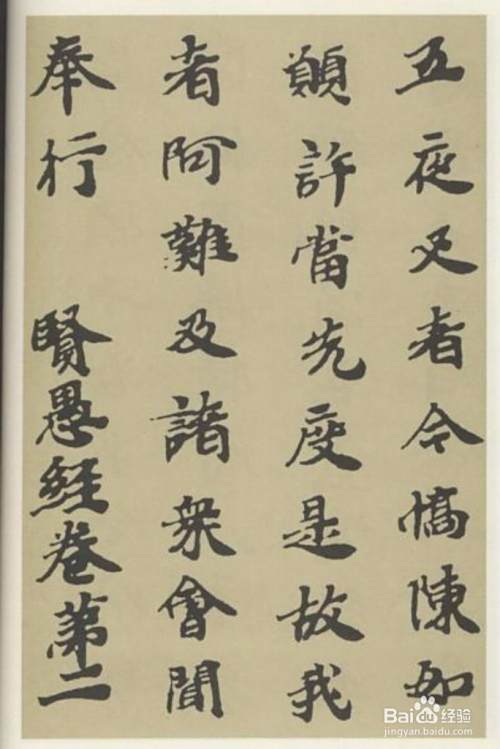 五夜叉者今憍陳如
願許當先度是故我
者阿難及諸衆會聞
奉行　賢愚經卷第二
Baidu经验
jingyan.baidu.com